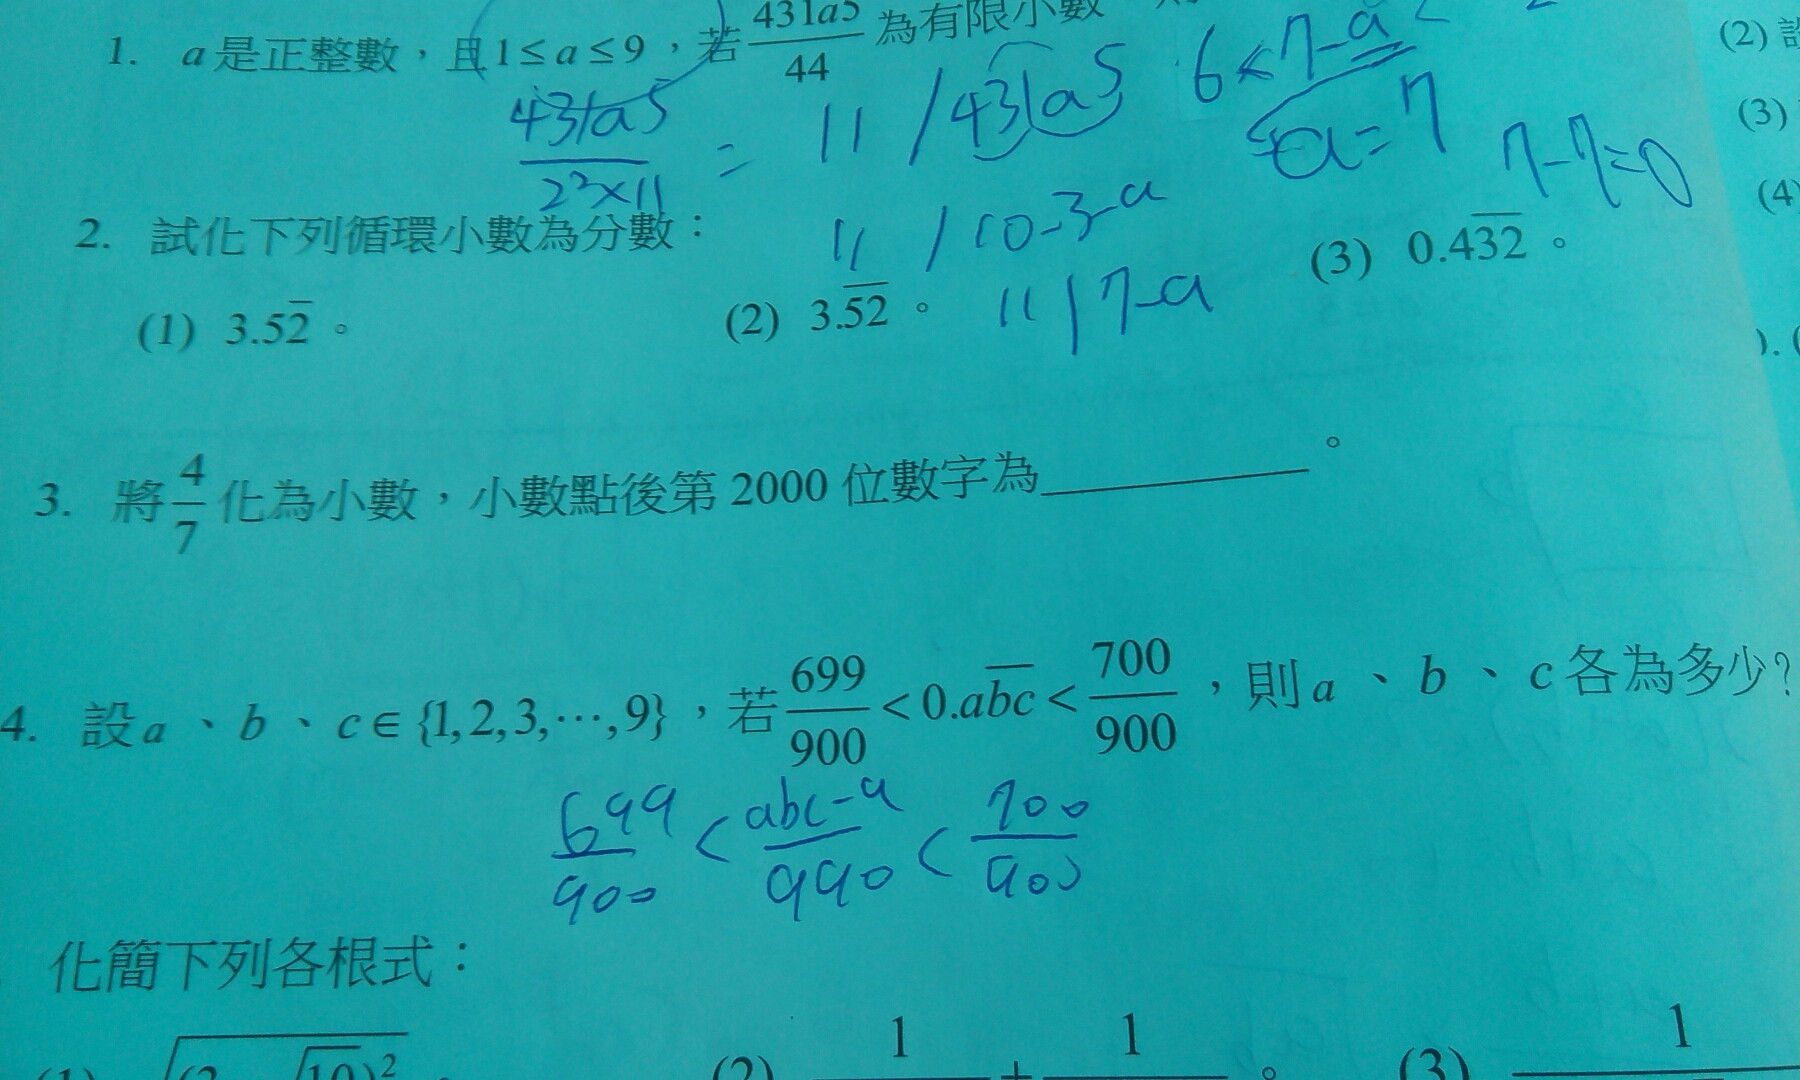 1. a是正整數，且1≤a≤9，若 431a5/44 為有限小數
431a5/2²×11 = 11 / 431a5 6< 7-a < 2
a=7 7-7=0
11 / 10-3-a
11 | 7-a
2. 試化下列循環小數為分數：
(1) 3.52̅。 (2) 3.5̅2̅。 (3) 0.43̅2̅。
3. 將 4/7 化為小數，小數點後第 2000 位數字為__________。
4. 設a、b、c∈{1,2,3,⋯,9}，若 699/900 < 0.ab̅c̅ < 700/900，則a、b、c各為多少?
699/900 < abc-a/990 < 700/900
化簡下列各根式：
(2) 1 + 1 。 (3) 1
(2)
(3)
(4)